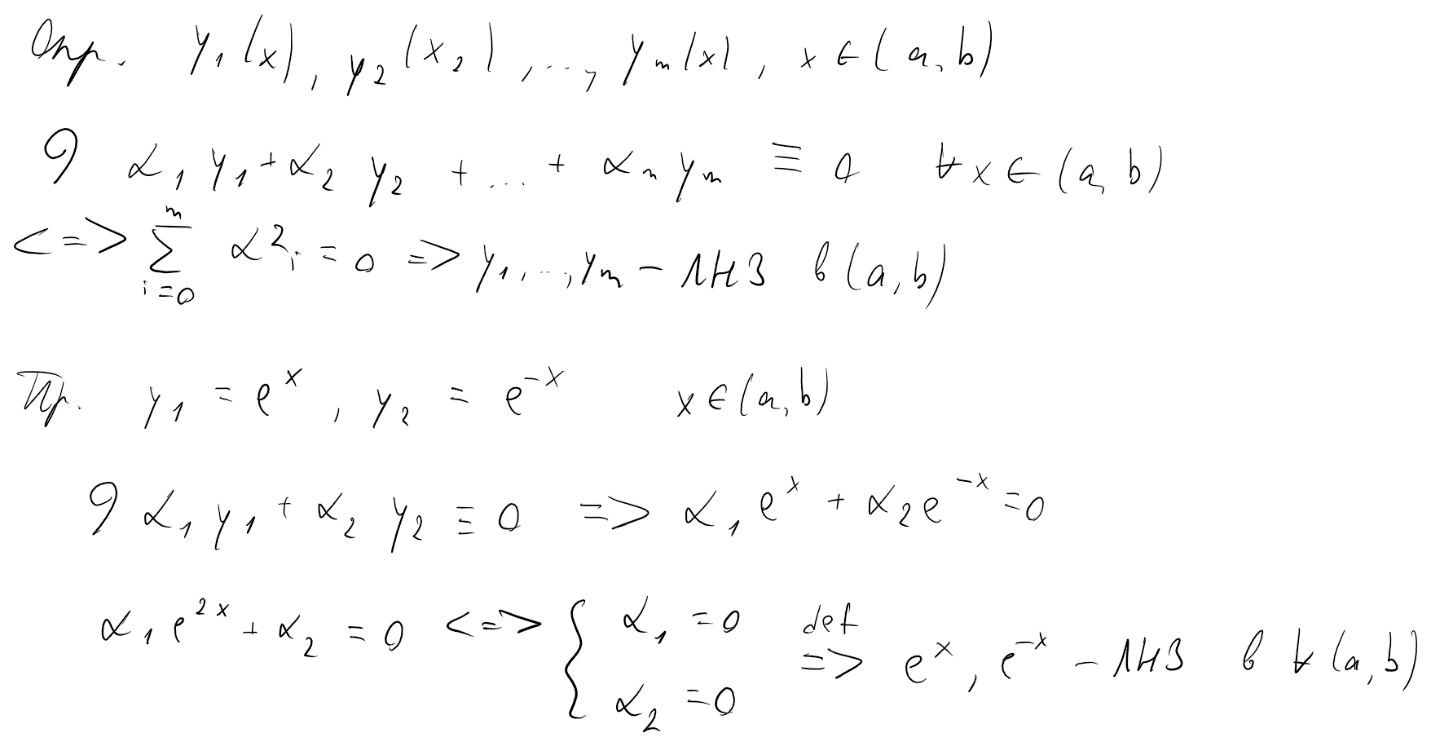 Опр. y₁(x), y₂(x₂), ..., yₘ(x), x ∈ (a, b)
∂ α₁y₁ + α₂y₂ + ... + αₙyₘ ≡ 0 ∀x ∈ (a, b)
<=> ∑_{i=0}^{m} α²ᵢ = 0 => y₁, ..., yₘ – ЛНЗ в (a, b)
Пр. y₁ = eˣ, y₂ = e⁻ˣ x ∈ (a, b)
∂ α₁y₁ + α₂y₂ ≡ 0 => α₁eˣ + α₂e⁻ˣ = 0
α₁e²ˣ + α₂ = 0 <=> { α₁ = 0, α₂ = 0 def => eˣ, e⁻ˣ – ЛНЗ в ∀(a, b)